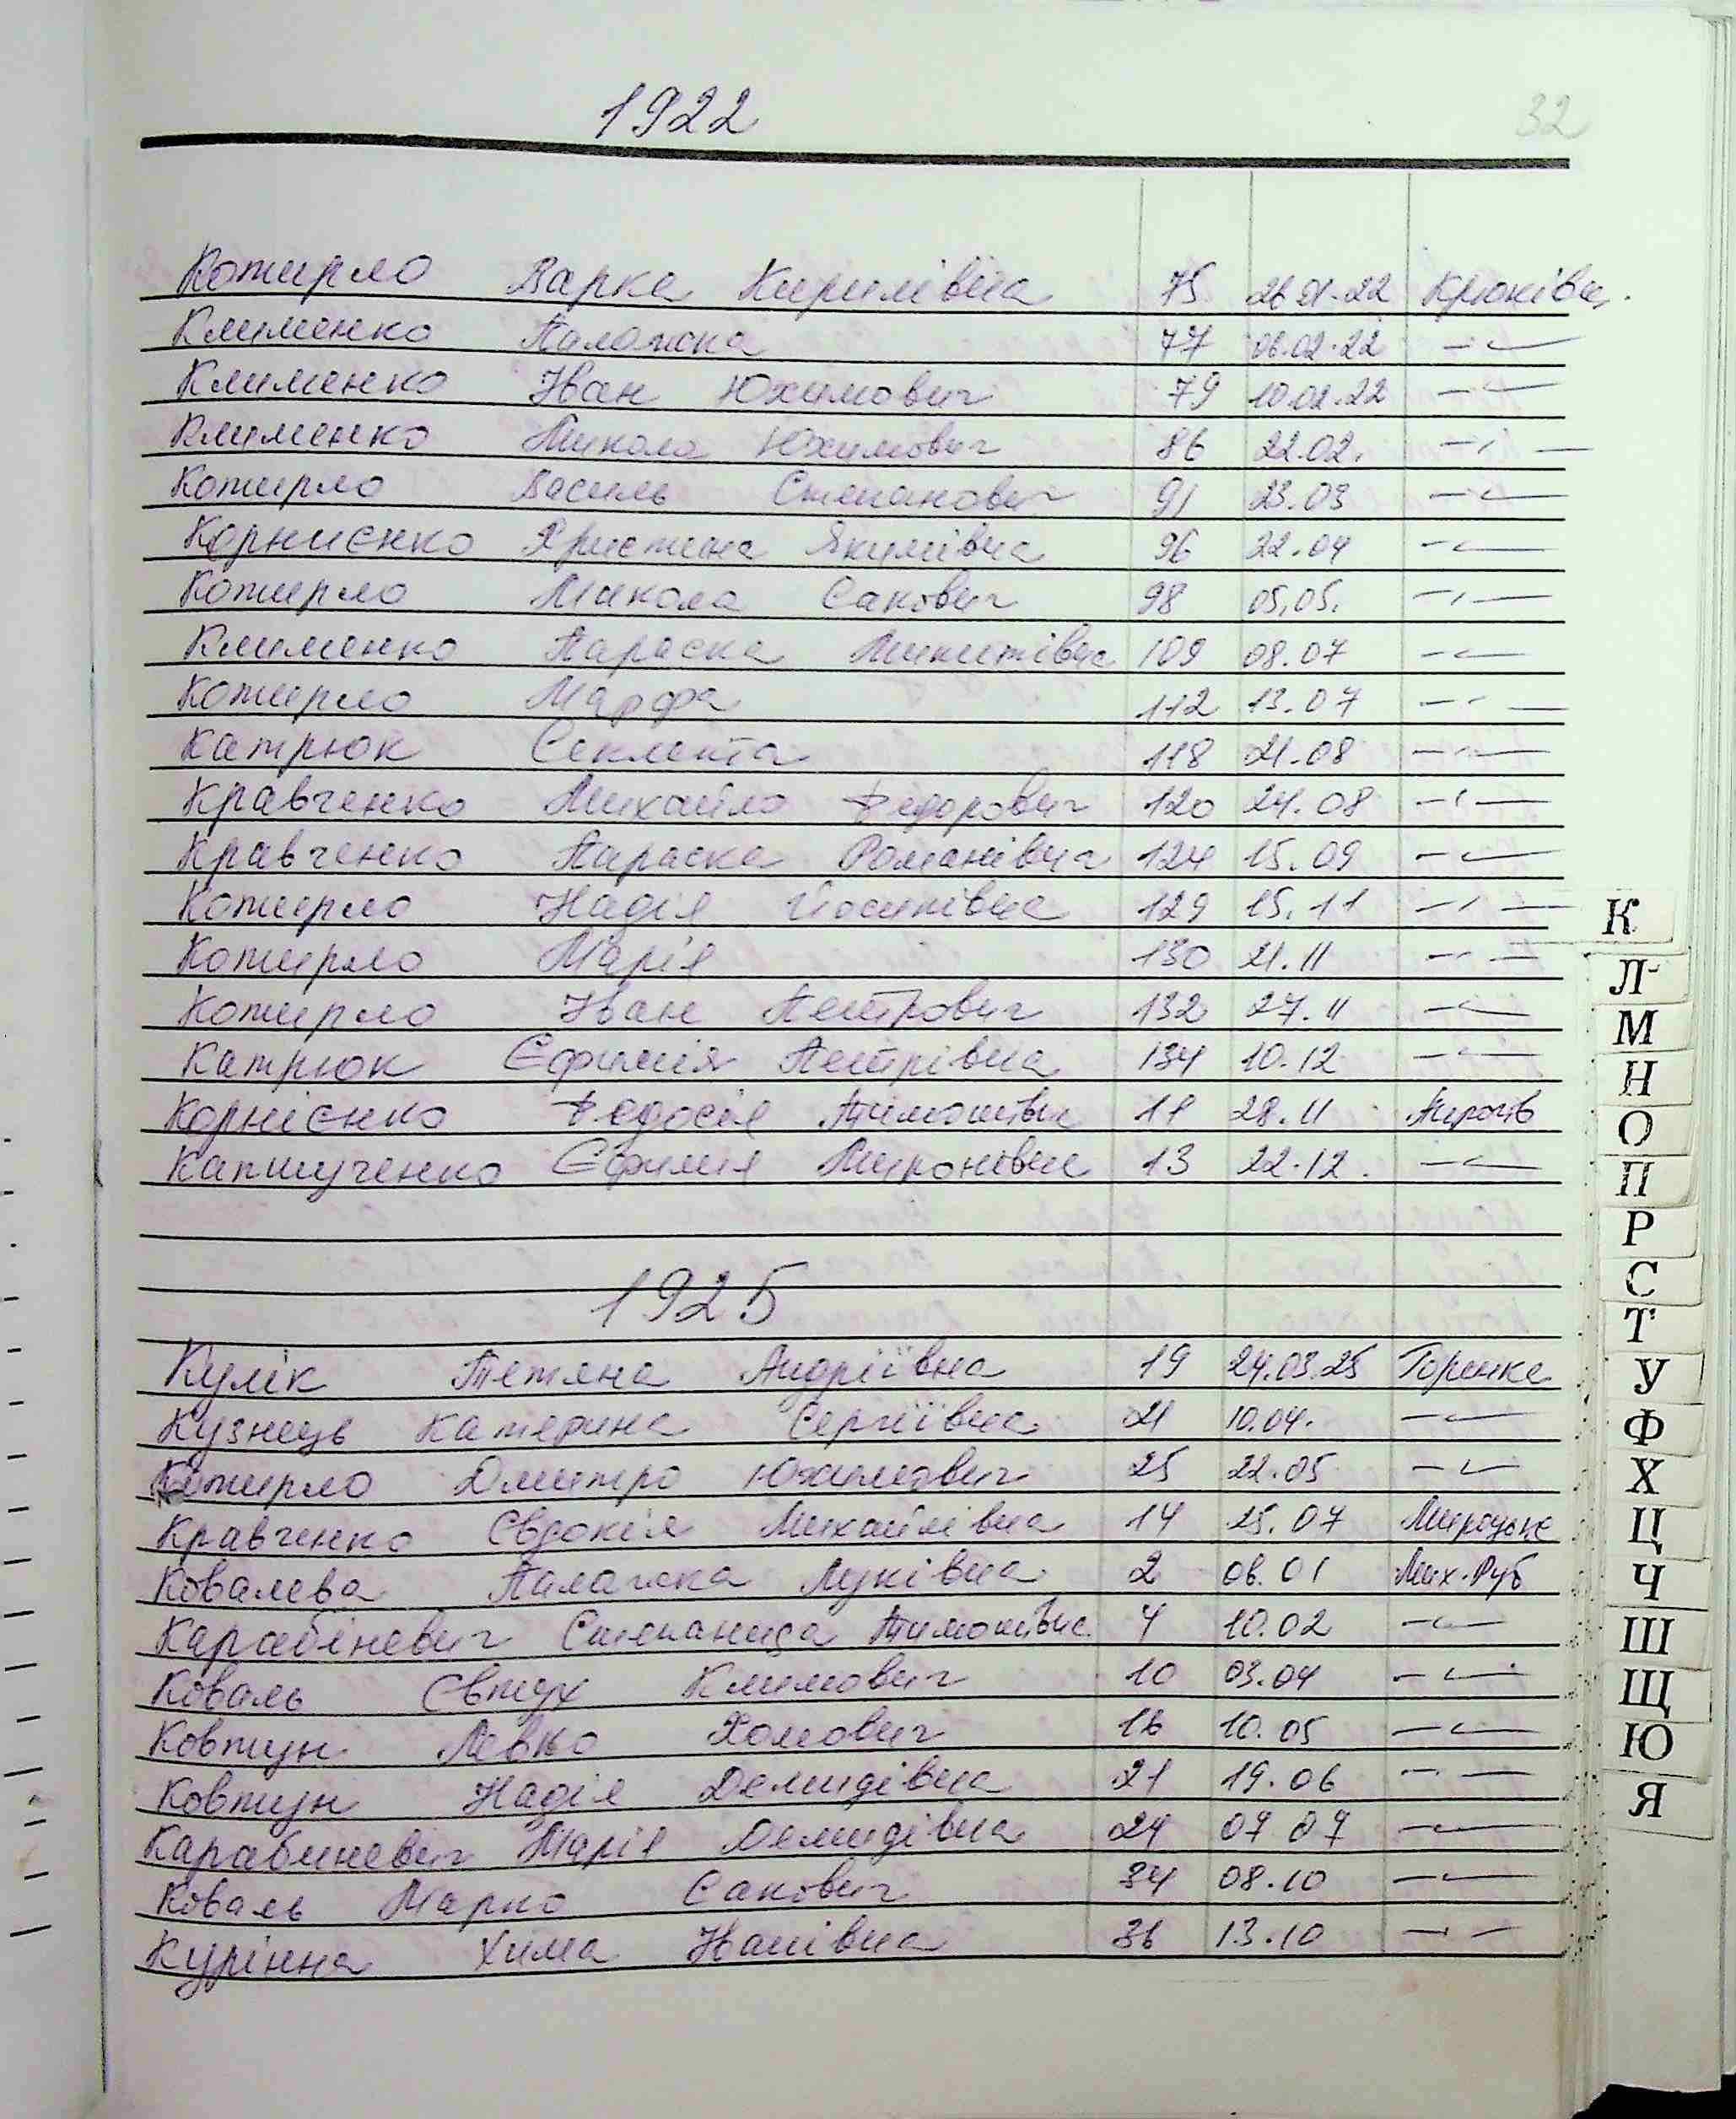 1922
32
Котирло Варка Кирилівна 75 26.01.22 Крюківщ.
Клименко Палажка 77 06.02.22 —〃—
Клименко Іван Юхимович 79 10.02.22 —〃—
Клименко Микола Юхимович 86 22.02. —〃—
Котирло Василь Степанович 91 23.03 —〃—
Корниєнко Христина Якимівна 96 22.04 —〃—
Котирло Микола Сакович 98 05.05. —〃—
Клименко Параска Микитівна 109 08.07 —〃—
Котирло Марфа 112 13.07 —〃—
Катрюк Секлета 118 21.08 —〃—
Кравченко Михайло Федорович 120 24.08 —〃—
Кравченко Параска Романівна 124 15.09 —〃—
Котирло Надія Йосипівна 129 15.11 —〃—
Котирло Марія 130 21.11 —〃—
Котирло Іван Петрович 132 27.11 —〃—
Катрюк Єфимія Петрівна 134 10.12 —〃—
Корнієнко Федосія Тімошівна 11 28.11
Капшученко Єфимія Миронівна 13 22.12. —〃—
1925
Кулік Тетяна Андріївна 19 24.03.25 Горенка
Кузнець Катерина Сергіївна 21 10.04. —〃—
Котирло Дмитро Юхимович 25 22.05 —〃—
Кравченко Євдокія Михайлівна 14 25.07 Мироцьке
Ковалева Палажка Луківна 2 06.01 Мих-Руб
Карабіневич Степанида Тимошівна 4 10.02 —〃—
Коваль Євтух Климович 10 03.04 —〃—
Ковтун Левко Хомович 16 10.05 —〃—
Ковтун Надія Демидівна 21 19.06 —〃—
Карабиневич Марія Демидівна 24 07.07 —〃—
Коваль Марко Сакович 34 08.10 —〃—
Курінна Хима Нанівна 36 13.10 —〃—
К
Л
М
Н
О
П
Р
С
Т
У
Ф
Х
Ц
Ч
Ш
Щ
Ю
Я